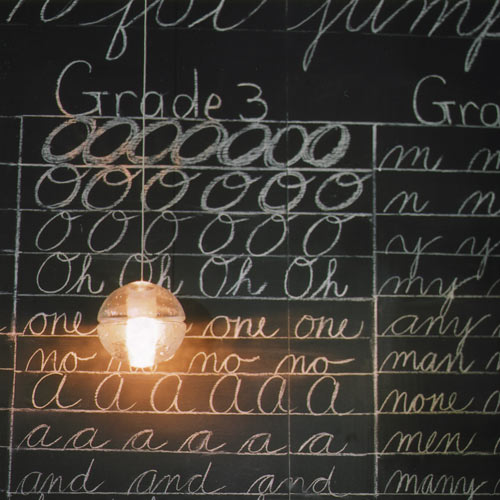 for jump
Grade 3
O O O O O O
O O O O O O
O O O O O O
Oh Oh Oh Oh
one one one
no no no
a a a a a a
a a a a a a
and and and
m
n
y y
my
any
man
none
men
many